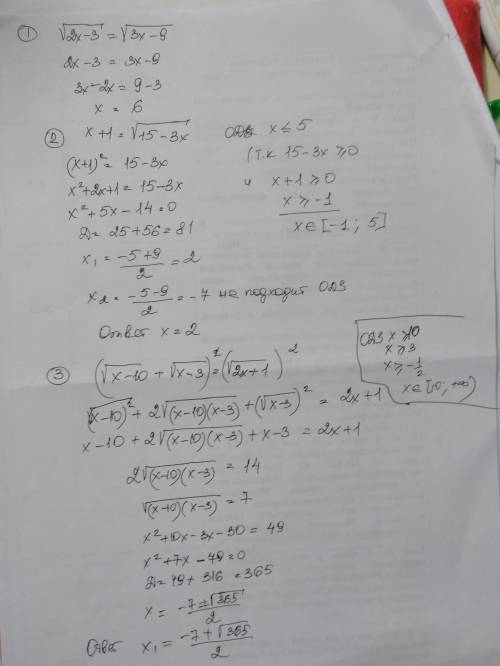 ① √(2x-3) = √(3x-9)
2x-3 = 3x-9
3x-2x = 9-3
x = 6
② x+1 = √(15-3x)
ОДЗ x ≤ 5
(x+1)² = 15-3x
(т.к 15-3x ≥ 0
x²+2x+1 = 15-3x
и x+1 ≥ 0
x²+5x-14=0
x ≥ -1
D= 25+56=81
x∈[-1; 5]
x₁ = (-5+9)/2 = 2
x₂ = (-5-9)/2 = -7 не подходит ОДЗ
Ответ x=2
ОДЗ x ≥ 10
x ≥ 3
x ≥ -1/2
x∈[10; +∞)
③ (√(x-10) + √(x-3))² = (√(2x+1))²
(√(x-10))² + 2√((x-10)(x-3)) + (√(x-3))² = 2x+1
x-10+2√((x-10)(x-3)) + x-3 = 2x+1
2√((x-10)(x-3)) = 14
√((x+10)(x-3)) = 7
x²+10x-3x-30 = 49
x²+7x-79=0
D= 49+316 = 365
x = (-7±√365)/2
Ответ x₁ = (-7+√365)/2